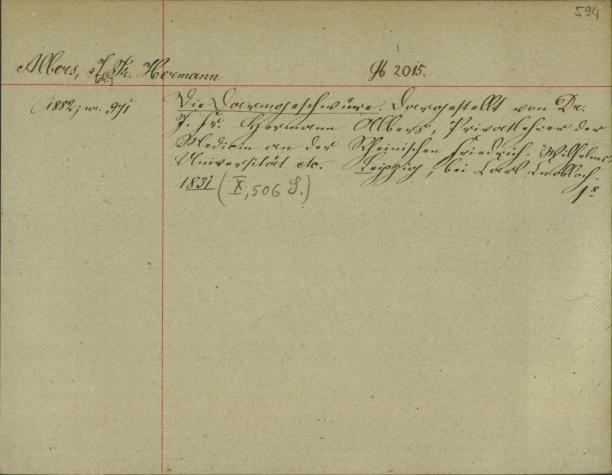 594
Albers, J. Fr. Hermann
1882, nr. 971
Die Darmgeschwüre. Dargestellt von Dr.
J. Fr. Hermann Albers, Privatlehrer der
Medicin an der Rheinischen Friedrich-Wilhelms-
Universität etc. Leipzig, bei Carl
1831 (X, 506 S.)
8
2015.